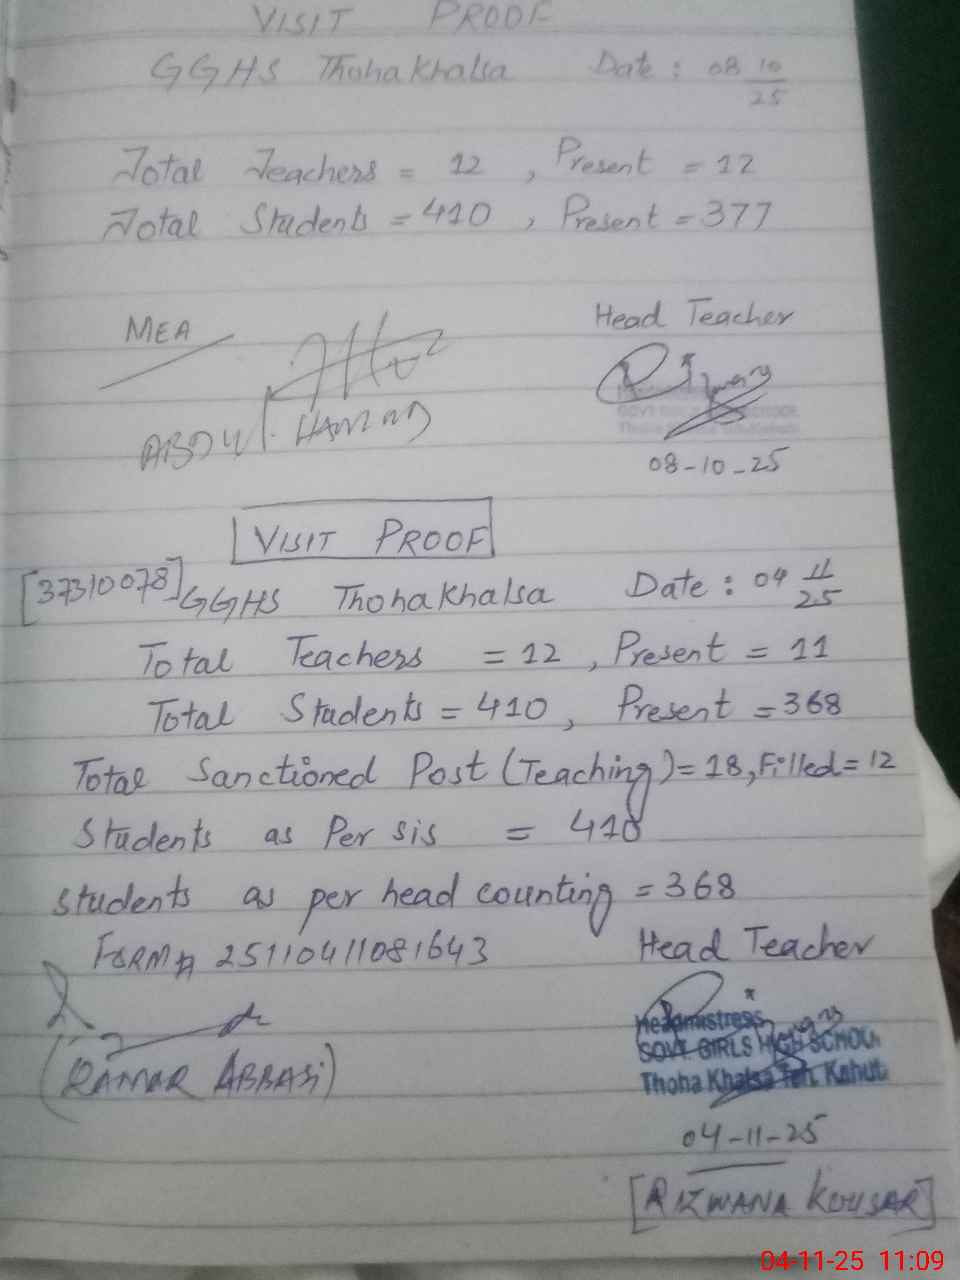 VISIT PROOF
GGHS Thoha Khalsa Date: 08 10/25
Total Teachers = 12, Present = 12
Total Students = 410, Present = 377
MEA
Head Teacher
ABDUL HAMEED
08-10-25
VISIT PROOF
[37310078] GGHS Thoha Khalsa Date: 04 11/25
Total Teachers = 12, Present = 11
Total Students = 410, Present = 368
Total Sanctioned Post (Teaching) = 18, Filled = 12
Students as Per sis = 410
students as per head counting = 368
FORM# 25110411081643 Head Teacher
Headmistress
GOVT. GIRLS HIGH SCHOOL
Thoha Khalsa Teh. Kahuta
(QAMAR ABBASi)
04-11-25
[RIZWANA KOUSAR]
04-11-25 11:09